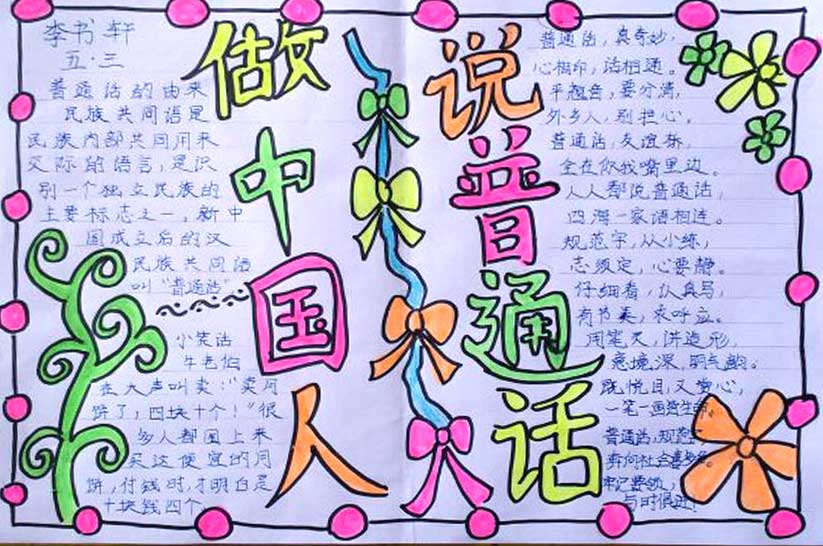 李书轩
五·三
做中国人
说普通话
普通话的由来
民族共同语是
民族内部共同用来
交际的语言，是识
别一个独立民族的
主要标志之一，新中
国成立后的汉
民族共同话
叫“普通话”
小笑话
牛老伯
在大声叫卖：“卖月
饼了，四块十个！”很
多人都围上来
买这便宜的月
饼，付钱时，才明白是
十块钱四个。
普通话，真奇妙，
心相印，话相通。
平翘音，要分清，
外乡人，别担心。
普通话，友谊桥，
全在你我嘴里边。
人人都说普通话，
四海一家语相连。
规范字，从小练，
志须定，心要静。
仔细看，认真写，
有节奏，求呼应。
用笔灵，讲造形，
意境深，
既悦目，又赏心，
一笔一画
普通话，规范
奔向社会
牢记要领，
与时俱进！